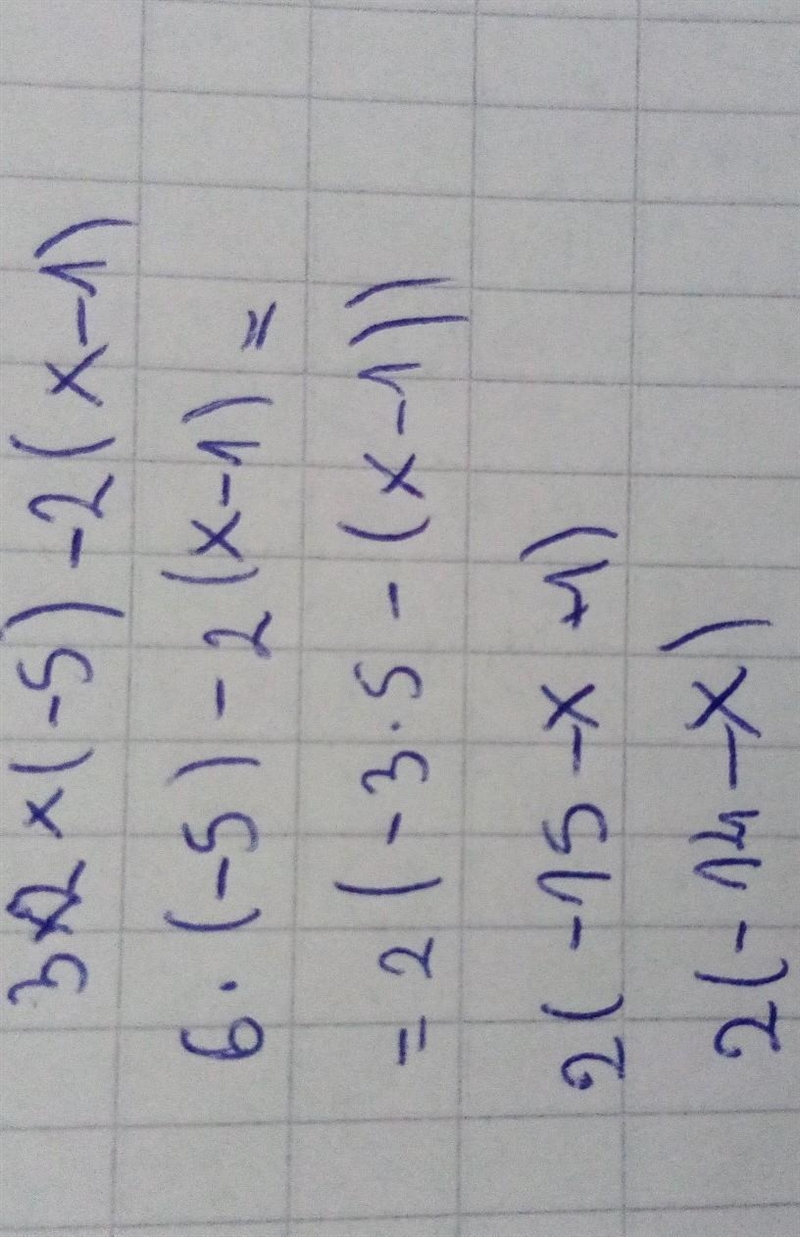 3×2 × (-5) - 2 (x-1)
6 · (-5) - 2 (x-1) =
= 2 (-3·5 - (x-1))
2 (-15 -x +1)
2 (-14 -x)